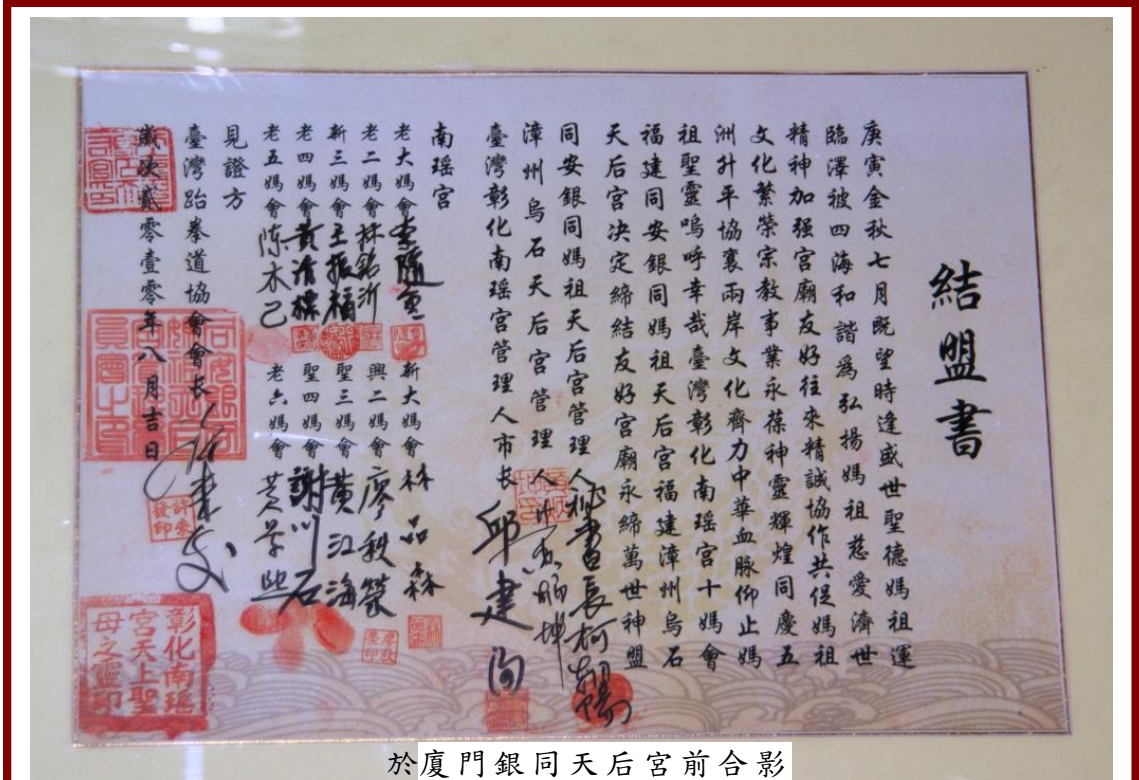 結盟書
庚寅金秋七月既望時逢盛世聖德媽祖運
臨澤被四海和諧為弘揚媽祖慈愛濟世
精神加强宮廟友好往來精誠協作共促媽祖
文化繁榮宗教事業永葆神靈輝煌同慶五
洲升平協襄兩岸文化齊力中華血脈仰止媽
祖聖靈嗚呼幸哉臺灣彰化南瑶宮十媽會
福建同安銀同媽祖天后宮福建漳州烏石
天后宮决定締結友好宮廟永締萬世神盟
同安銀同媽祖天后宮管理人秘書長柯
漳州烏石天后宮管理人
臺灣彰化南瑶宮管理人市长邱建
南瑶宮
老大媽會李 新大媽會林品森
老二媽會林銘沂 興二媽會廖秋
新三媽會王振福 聖三媽會黃江海
老四媽會黃清標 聖四媽會謝川石
老五媽會陈木己 老六媽會
見證方
臺灣跆拳道協會會长
歲次貳零壹零年八月吉日
彰化南瑶
宮天上聖
母之靈印
於廈門銀同天后宮前合影